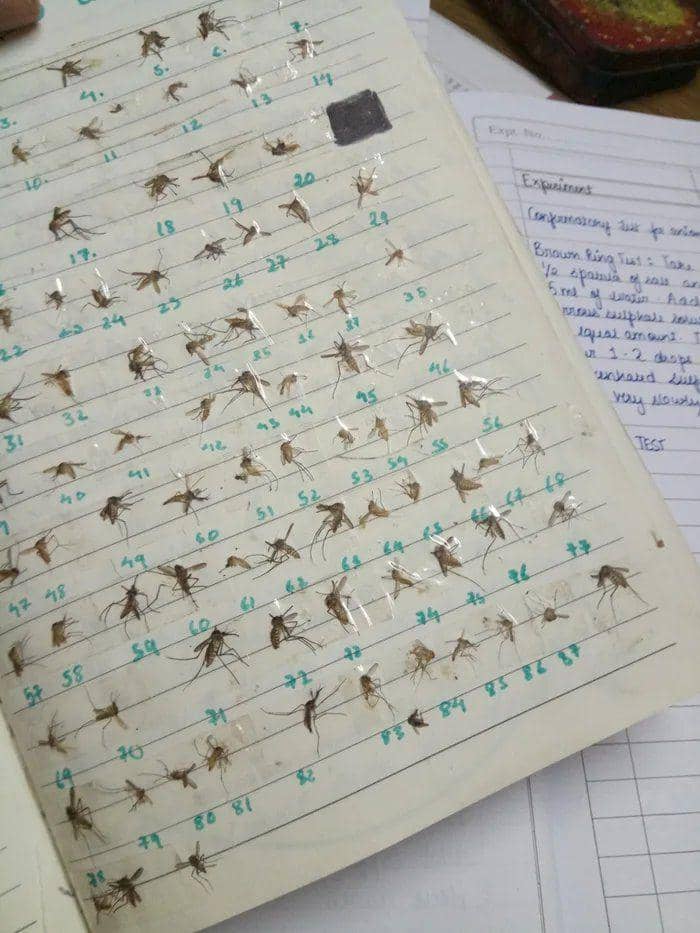 3. 4. 5. 6. 7.
10. 11 12 13 14
17. 18 19 20
22 23 24 25 26 27 28 29
31 32 33 34 35 36 37
40 41 42 43 44 45 46
47 48 49 50 51 52 53 54 55 56
57 58 59 60 61 62 63 64 65 66 67 68
69 70 71 72 73 74 75 76 77
78 79 80 81 82 83 84 85 86 87
Expt. No.
Experiment
Confirmatory test for anion
Brown Ring Test : Take
1/2 spatula of salt an
5 ml of water. Add
rrous sulphate solu
equal amount. T
1-2 drops
very slowly
TEST